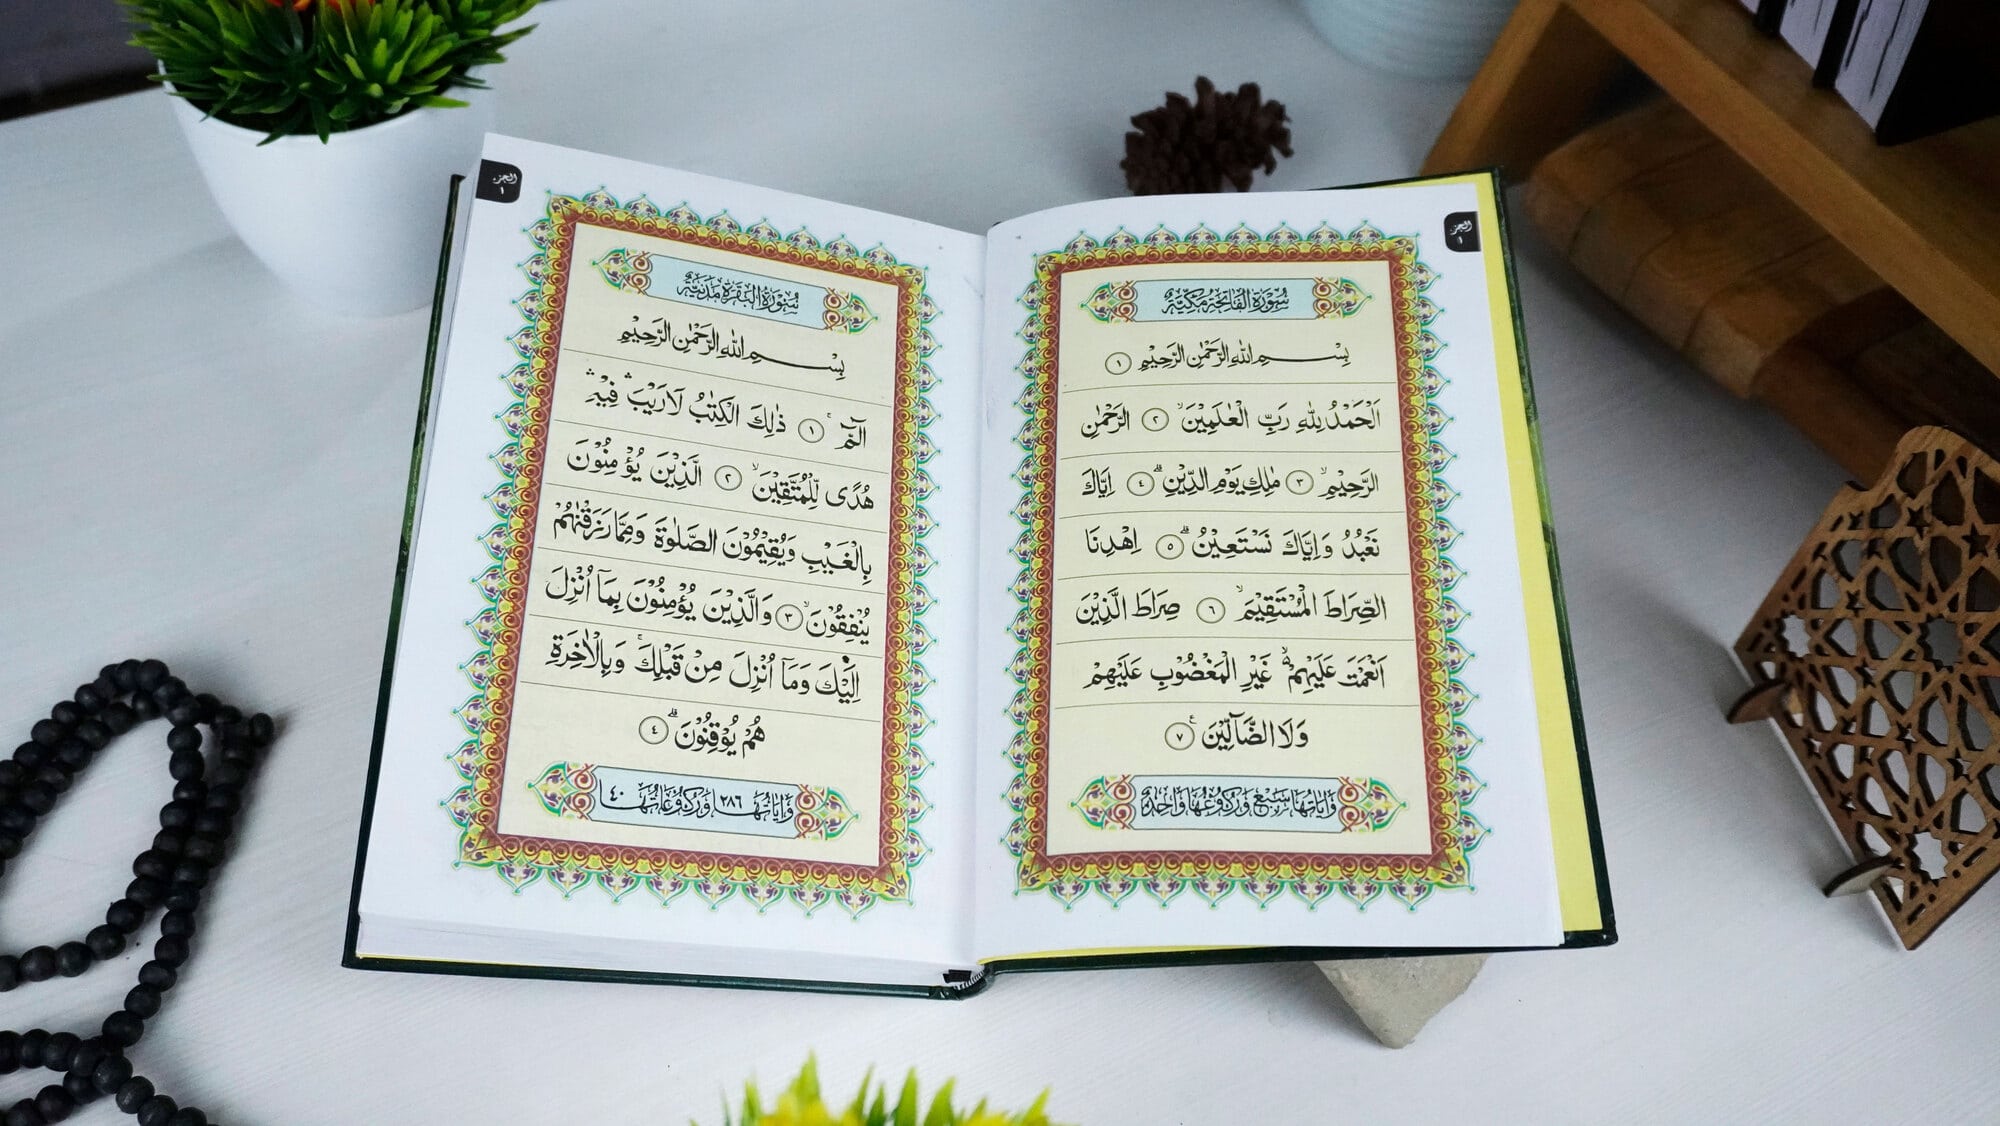 الجزء
١
سُوْرَةُ الْفَاتِحَةِ مَكِّيَّةٌ
بِسْمِ اللّٰهِ الرَّحْمٰنِ الرَّحِيْمِ ١
اَلْحَمْدُ لِلّٰهِ رَبِّ الْعٰلَمِيْنَۙ ٢ الرَّحْمٰنِ
الرَّحِيْمِۙ ٣ مٰلِكِ يَوْمِ الدِّيْنِۗ ٤ اِيَّاكَ
نَعْبُدُ وَاِيَّاكَ نَسْتَعِيْنُۗ ٥ اِهْدِنَا
الصِّرَاطَ الْمُسْتَقِيْمَۙ ٦ صِرَاطَ الَّذِيْنَ
اَنْعَمْتَ عَلَيْهِمْ ەۙ غَيْرِ الْمَغْضُوْبِ عَلَيْهِمْ
وَلَا الضَّاۤلِّيْنَࣖ ٧
وَاٰيَاتُهَا سَبْعٌ وَرُكُوْعُهَا وَاحِدَةٌ
الجزء
١
سُوْرَةُ الْبَقَرَةِ مَدَنِيَّةٌ
بِسْمِ اللّٰهِ الرَّحْمٰنِ الرَّحِيْمِ
الۤمّۤۚ ١ ذٰلِكَ الْكِتٰبُ لَا رَيْبَۛ فِيْهِۛ
هُدًى لِّلْمُتَّقِيْنَۙ ٢ الَّذِيْنَ يُؤْمِنُوْنَ
بِالْغَيْبِ وَيُقِيْمُوْنَ الصَّلٰوةَ وَمِمَّا رَزَقْنٰهُمْ
يُنْفِقُوْنَۙ ٣ وَالَّذِيْنَ يُؤْمِنُوْنَ بِمَآ اُنْزِلَ
اِلَيْكَ وَمَآ اُنْزِلَ مِنْ قَبْلِكَۚ وَبِالْاٰخِرَةِ
هُمْ يُوْقِنُوْنَۗ ٤
وَاٰيَاتُهَا ٢٨٦ وَرُكُوْعَاتُهَا ٤٠